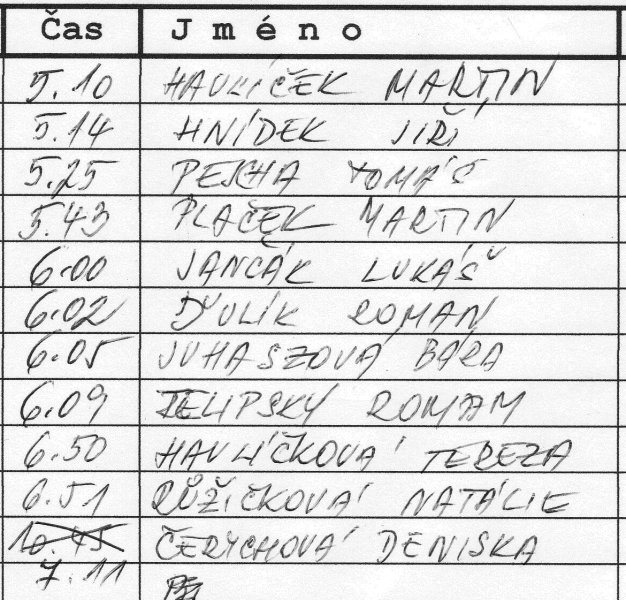 Čas Jméno
5.10 HAVLÍČEK MARTIN
5.14 HNÍDEK JIŘÍ
5.25 PEJCHA TOMÁŠ
5.43 PLAČEK MARTIN
6.00 JANČÁK LUKÁŠ
6.02 ĎULÍK ROMAN
6.05 JUHASZOVÁ BÁRA
6.09 ROMAM
6.50 HAVLÍČKOVÁ TEREZA
6.51 RŮŽIČKOVÁ NATÁLIE
10.45 ČERYCHOVÁ DENISKA
7.11